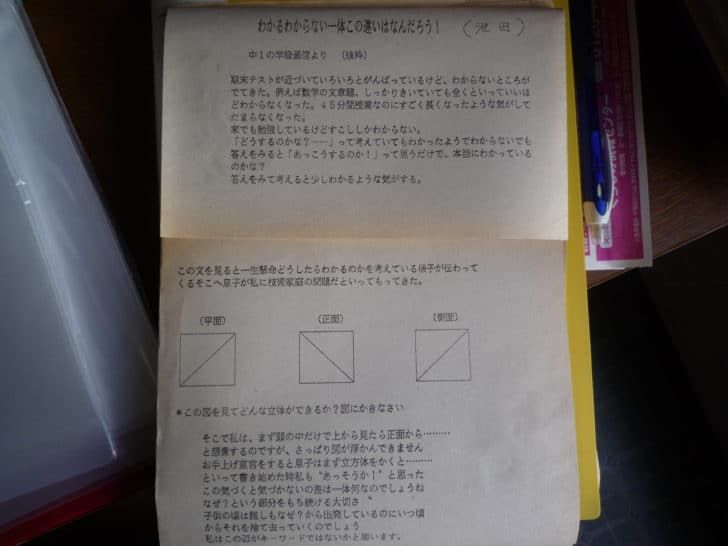 わかるわからない一体この違いはなんだろう！ （池田）
中１の学級通信より （抜粋）
期末テストが近づいていろいろとがんばっているけど、わからないところが
でてきた。例えば数学の文章題、しっかりきいていても全くといっていいほ
どわからなくなった。４５分間授業なのにすごく長くなったような気がして
たまらなくなった。
家でも勉強しているけどすこししかわからない。
「どうするのかな？……」って考えていてもわかったようでわからないでも
答えをみると「あっこうするのか！」って思うだけで、本当にわかっている
のかな？
答えをみて考えると少しわかるような気がする。
この文を見ると一生懸命どうしたらわかるのかを考えている様子が伝わって
くるそこへ息子が私に技術家庭の問題だといってもってきた。
（平面） （正面） （側面）
＊この図を見てどんな立体ができるか？図にかきなさい
そこで私は、まず頭の中だけで上から見たら正面から………
と想像するのですが、さっぱり図が浮かんできません
お手上げ宣言をすると息子はまず立方体をかくと………
といって書き始めた時私も“あっそうか！”と思った
この気づくと気づかないの差は一体何なのでしょうね
なぜ？という部分をもち続ける大切さ
子供の頃は誰しもなぜ？から出発しているのにいつ頃
からそれを捨て去っていくのでしょう
私はこの辺がキーワードではないかと思います。